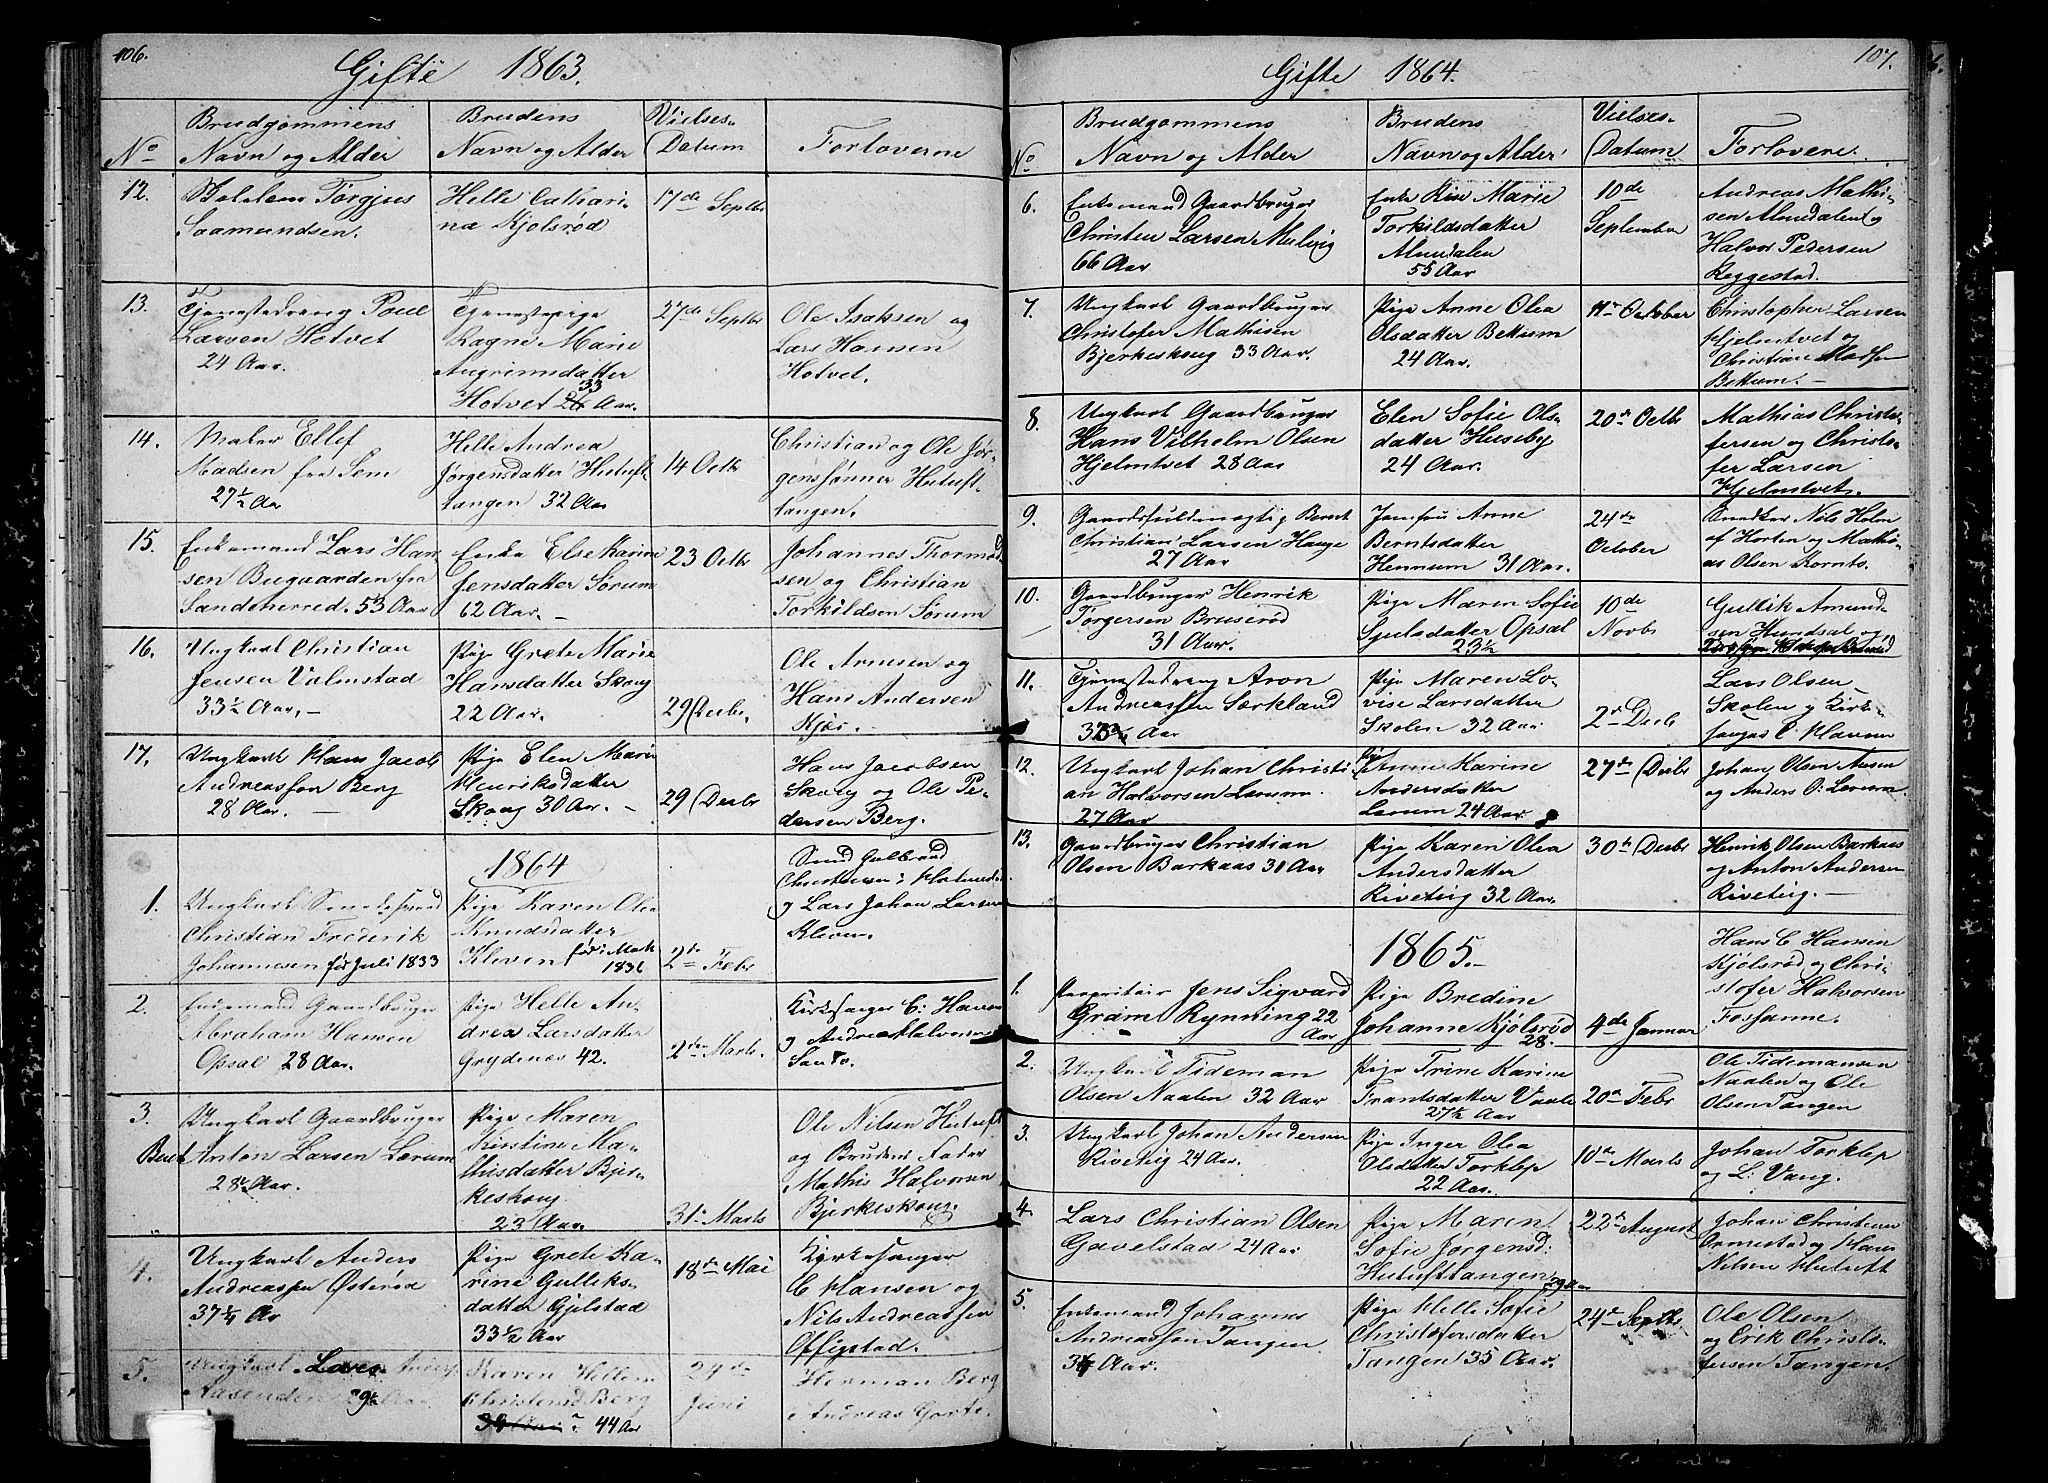 106.
Gifte 1863.
No
Brudgommens
Navn og Alder
Brudens
Navn og Alder
Vielses-
Datum
Forloverne
12.
Torgjus
Saamundsen.
Helle Cathari-
na Kjølsrød
17de Septbr
13.
Tjenestedreng Poul
Larsen Hotvet
24 Aar.
Tjenestepige
Ragne Marie
Angrimsdatter
Hotvet 33 Aar.
27de Septbr
Ole Isaksen og
Lars Hansen
Hotvet.
14.
Matros Ellef
Madsen fra Sem
27½ Aar
Helle Andrea
Jørgensdatter Hutuft-
tangen 32 Aar
14 Octbr
Christian og Ole Jør-
genssønner Hutuft-
tangen.
15.
Enkemand Lars Han-
sen Bugaarden fra
Sandeherred. 53 Aar
Enke Else Karine
Jensdatter Sørum
62 Aar. –
23 Octbr
Johannes Thormod-
sen og Christian
Torkildsen Sørum
16.
Ungkarl Christian
Jensen Valmestad
33½ Aar. –
Pige Grete Marie
Hansdatter Skoug
22 Aar.
29 Decbr.
Ole Arnesen og
Hans Andersen
Kjær.
17.
Ungkarl Hans Jacob
Andreassen Berg
28 Aar.
Pige Elen Marie
Henriksdatter
Skoug 30 Aar. –
29 Decbr
Hans Jacobsen
Skoug og Ole Pe-
dersen Berg.
1864
1.
Ungkarl
Christian Frederik
Johannesen før Juli 1833
Pige Karen Olea
Knudsdatter
Kleven
2den Febr
Gulbrand
Christensen i
og Lars Johan Larsen
Kleven.
2.
Enkemand Gaardbruger
Abraham Hansen
Opsal 28 Aar.
Pige Helle An-
drea Larsdatter
Grydenæs 42.
2den Marts.
Kirkesanger C: Hansen
og Andreas Halvorsen
3.
Ungkarl Gaardbruger
Anton Larsen Lerum
28½ Aar.
Pige Maren
Kirstine Ma-
thisdatter Bjer-
keskoug
23 Aar.
31te Marts
Ole Nilsen Hutuft
og Brudens Fader
Mathis Halvorsen
Bjerkeskoug.
4.
Ungkarl Anders
Andreassen Østerød
37¼ Aar
Pige Grete Ka-
rine Gulliks-
datter Gjelstad
33½ Aar
18de Mai
Kirkesanger
C Hansen og
Nils Andreassen
Offigstad.
5.
Ungkarl
Karen Helene
Christensd Berg
44 Aar
24de
Juni
Herman Berg
Andreas
107.
Gifte 1864.
No
Brudgommens
Navn og Alder
Brudens
Navn og Alder
Vielses-
Datum
Forlovere.
6.
Enkemand Gaardbruger
Christen Larsen Mulvig
66 Aar
Enke Marie
Torkildsdatter
Almedalen
55 Aar
10de
September
Andreas Mathi-
sen Almedalen og
Halvor Pedersen
Reggestad.
7.
Ungkarl Gaardbruger
Christofer Mathisen
Bjerkeskoug 33 Aar.
Pige Anne Olea
Olsdatter Bettum
24 Aar.
October
Christopher Larsen
Hjelmtvet og
Christian Madsen
Bettum. –
8.
Ungkarl Gaardbruger
Hans Vilhelm Olsen
Hjelmtvet 28 Aar
Elen Sofie Ols-
datter Huseby
24 Aar.
20de Octbr
Mathias Christo-
fersen og Christo-
fer Larsen
Hjelmtvet.
9.
Gaardsfuldmægtig Bernt
Christian Larsen Hauge
27 Aar
Jomfru Anne
Berntsdatter
Hennum 31 Aar.
24de
October
Nils Holm
af Horten og Mathi-
as Olsen
10.
Gaardbruger Henrik
Torgersen Bruserød
31 Aar.
Pige Maren Sofie
Sjulsdatter Opsal
23½
10de
Novbr
Gullik Amund-
sen Hundsal og
11.
Tjenestedreng Aron
Andreassen Særkland
Aar
Pige Maren Lo-
vise Larsdatter
Skolen 32 Aar
2de Decbr
Lars Olsen
Skolen og Kirke-
sanger C. Hansen
12.
Ungkarl Johan Christi-
an Halvorsen Lerum.
27 Aar
Pige Anne Karine
Andersdatter
Lerum 24 Aar.
27de Decbr
Johan Olsen
og Anders O: Lerum.
13.
Gaardbruger Christian
Olsen Barkaas 30 Aar
Pige Karen Olea
Andersdatter
Rivetug 32 Aar.
30te Decbr
Henrik Olsen Barkaas
og Anton Andersen
Rivetug. –
1865. –
1.
Proprietær Jens Sigvard
Gram Rynning 22
Aar
Pige Bredine
Johanne Kjølsrød
28.
4de Januar
Hans C Hansen
Kjølsrød og Chri-
stofer Halvorsen
Fossanne.
2.
Ungkarl Tideman
Olsen Naalen 32 Aar
Pige Trine Karine
Frantsdatter Vaale
27½ Aar
20de Febr
Ole Tidemansen
Naalen og Ole
Olsen Tangen
3.
Ungkarl Johan Andersen
Rivetug 24 Aar.
Pige Inger Olea
Olsdatter Torklep
22 Aar.
10de Marts
Johan Torklep
og L: Vang.
4.
Lars Christian Olsen
Gavelstad 24 Aar
Pige Maren
Sofie Jørgensd:
Hutufttangen 29 Aar
22de August
Johan Christian
Ormestad og Hans
Nilsen Hutuft
5.
Enkemand Johannes
Andreassen Tangen
Aar.
Pige Helle Sofie
Christofersdatter
Tangen 35 Aar.
24de Septbr
Ole Olsen
og Erik Christo-
fersen Tangen.